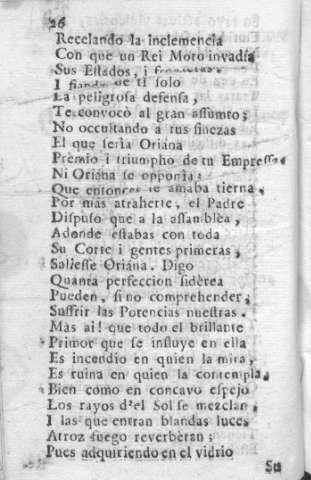 26
Recelando la inclemencia
Con que un Rei Moro invadía
Sus Estados, i
I de ti solo
La peligrosa defensa,
Te convocò al gran assumto;
No occultando a tus finezas
El que seria Oriana
Premio i triumpho de tu Empressa,
Ni Oriana se opponia;
Que entonces te amaba tierna,
Por más atraherte, el Padre
Dispuso que a la assamblea,
Adonde estabas con toda
Su Corte i gentes primeras,
Saliesse Oriána. Digo
Quanta perfeccion sidèrea
Pueden, si no comprehender,
Suffrir las Potencias nuestras.
Mas ai! que todo el brillante
Primor que se influye en ella
Es incendio en quien la mira,
Es ruina en quien la contempla,
Bien como en concavo espejo
Los rayos d'el Sol se mezclan,
I las que entran blandas luces
Atroz fuego reverbèran;
Pues adquiriendo en el vidrio
Su